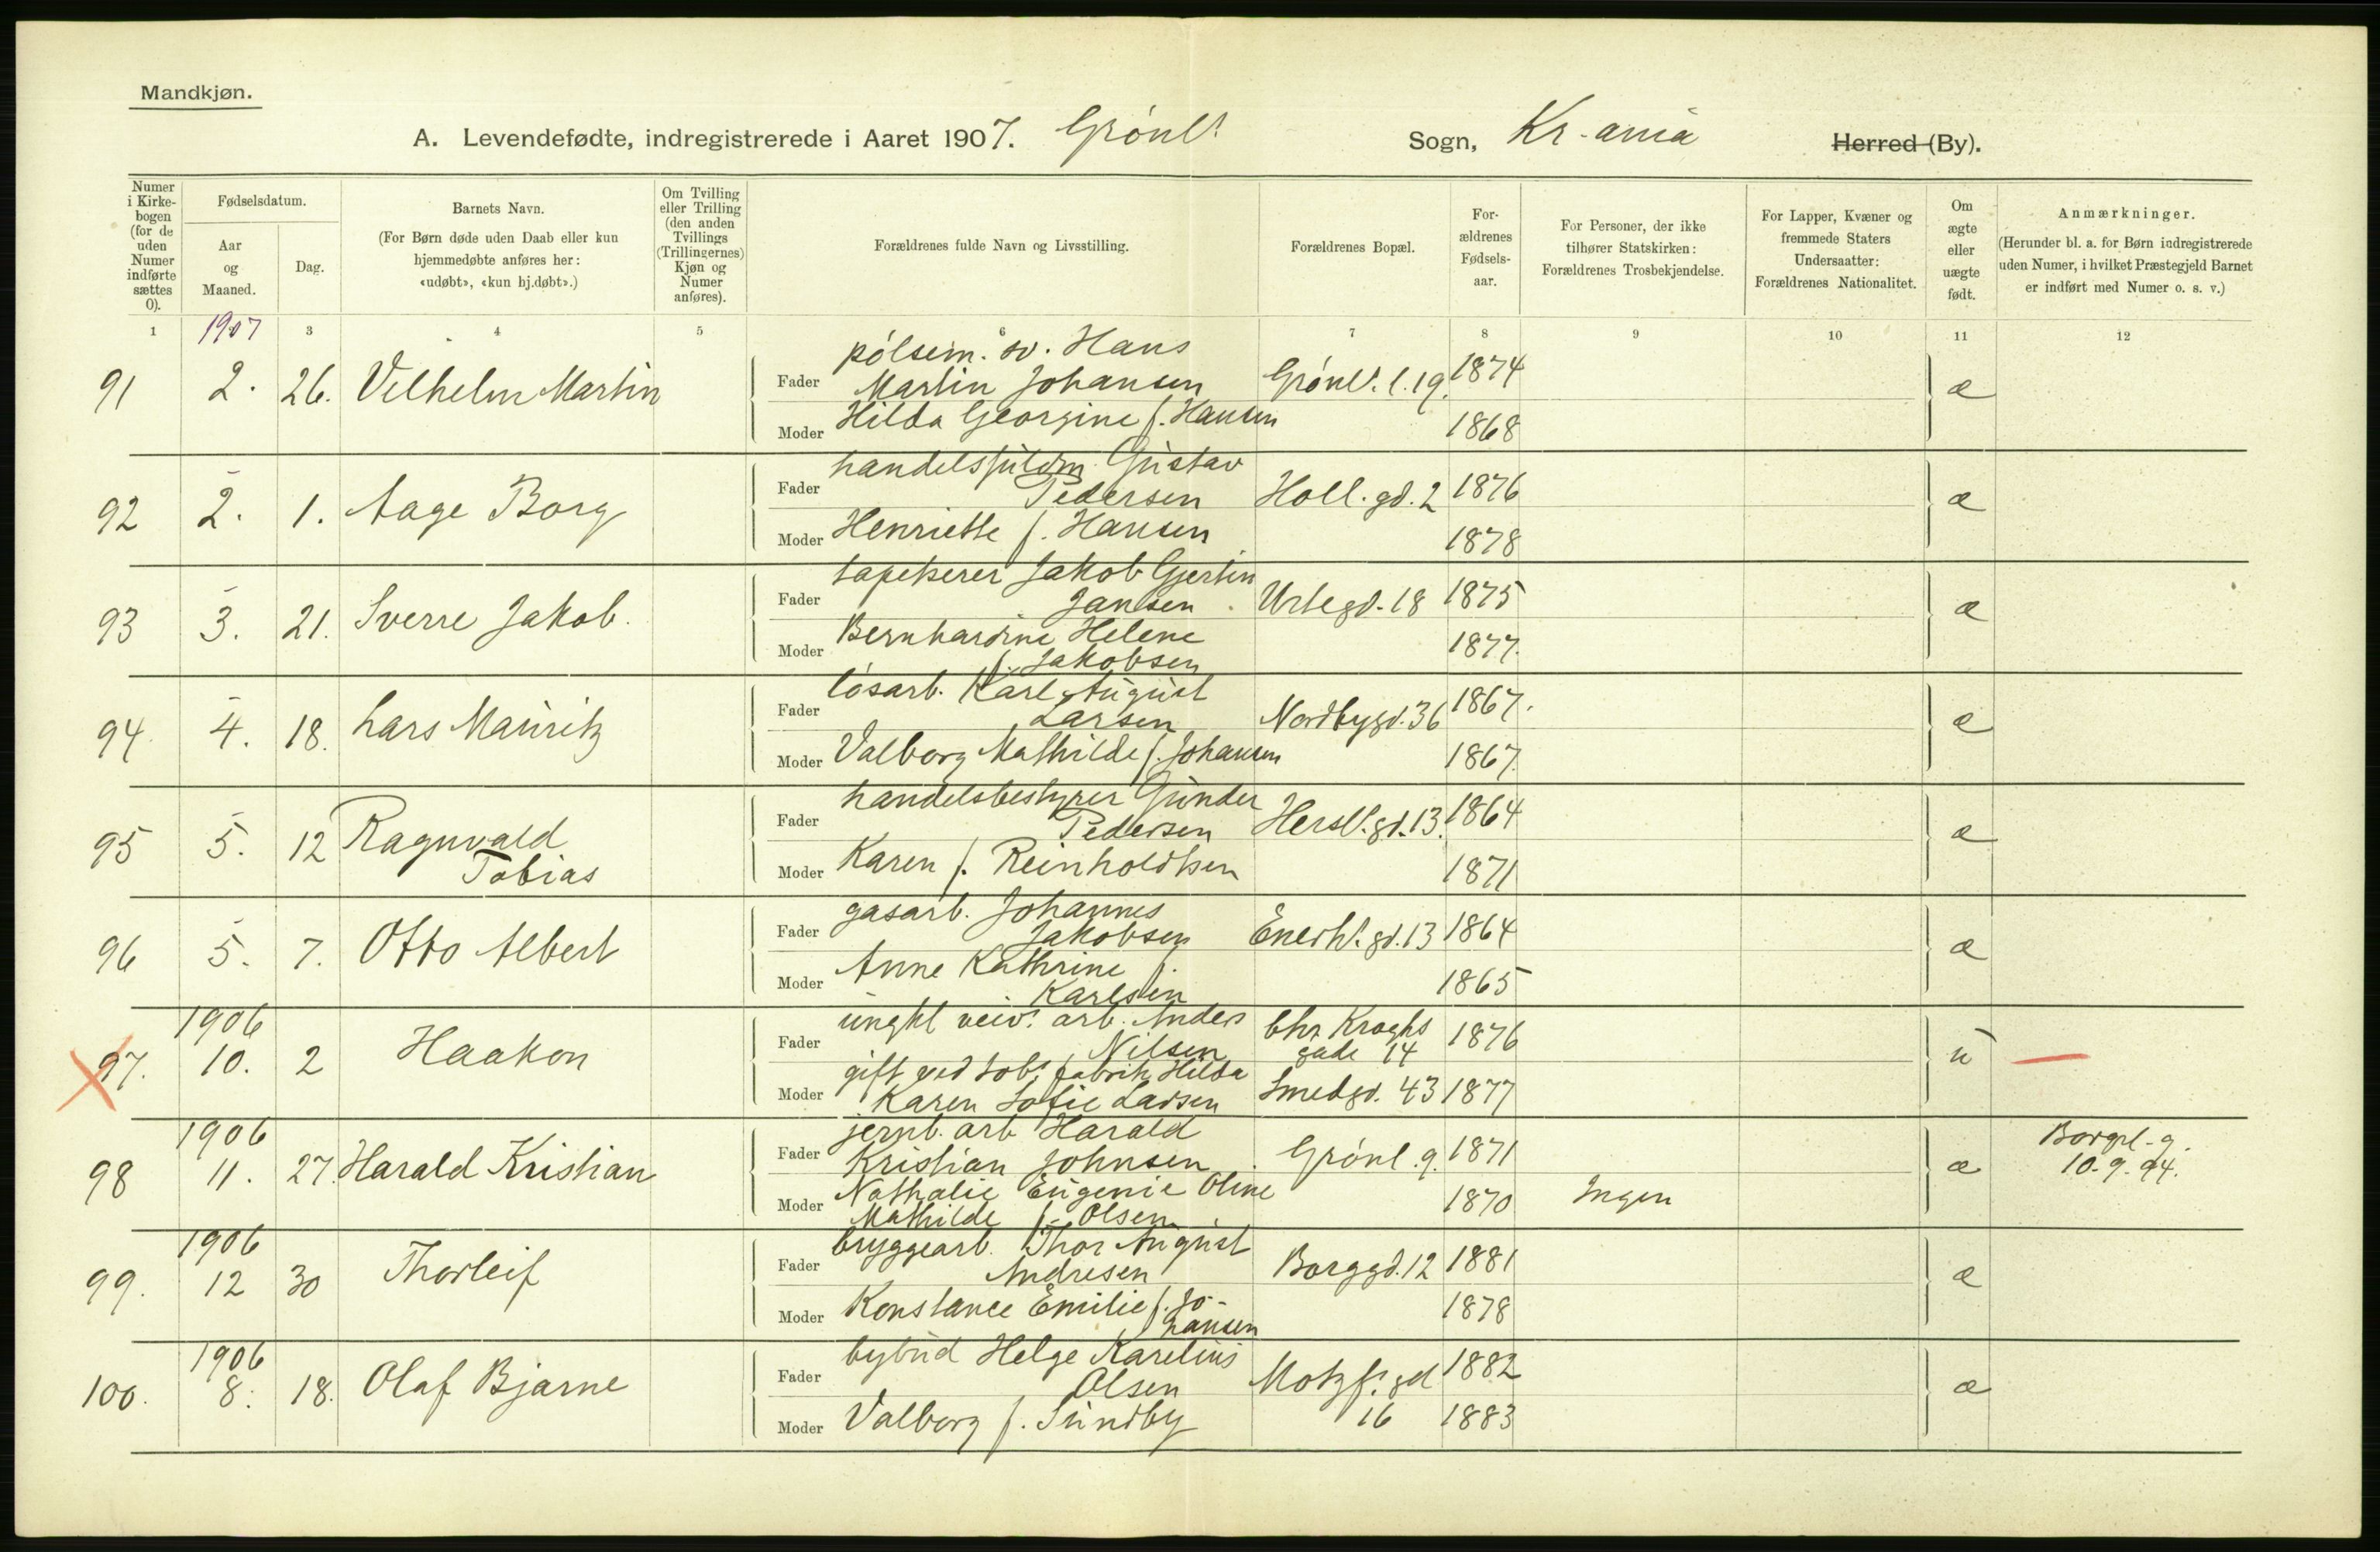 Mandkjøn.
A. Levendefødte, indregistrerede i Aaret 1907. Grönl. Sogn, Kr-ania Herred (By).
Numer i Kirke-bogen (for de uden Numer indførte sættes 0).
Fødselsdatum.
Aar og Maaned.
Dag.
Barnets Navn.
(For Børn døde uden Daab eller kun hjemmedøbte anføres her: «udøbt», «kun hj.døbt».)
Om Tvilling eller Trilling (den anden Tvillings (Trillingernes) Kjøn og Numer anføres).
Forældrenes fulde Navn og Livsstilling.
Forældrenes Bopæl.
For-ældrenes Fødsels-aar.
For Personer, der ikke tilhører Statskirken: Forældrenes Trosbekjendelse.
For Lapper, Kvæner og fremmede Staters Undersaatter: Forældrenes Nationalitet.
Om ægte eller uægte født.
Anmærkninger.
(Herunder bl. a. for Børn indregistrerede uden Numer, i hvilket Præstegjeld Barnet er indført med Numer o. s. v.)
1 1907 3 4 5 6 7 8 9 10 11 12
pölsem. sv. Hans
91 2. 26. Vilhelm Martin Fader Martin Johansen Grönl. l. 19. 1874 æ
Moder Hilda Georgine f. Hansen 1868
handelsfuldm. Gustav
92 2. 1. Aage Borg Fader Pedersen Holl. gd. 2 1876 æ
Moder Henriette f. Hansen 1878
tapetserer Jakob Gjertin
93 3. 21. Sverre Jakob. Fader Jansen. Urtegd. 18 1875 æ
Moder Bernhardine Helene 1877.
f. Jakobsen
lösarb. Karl August
94 4. 18. Lars Mauritz Fader Larsen Nordbygd. 36 1867. æ
Moder Valborg Mathilde f. Johansen 1867.
handelsbestyrer Gunder
95 5. 12 Ragnvald Fader Pedersen Hersl. gd. 13. 1864 æ
Tobias Moder Karen f. Reinholdtsen 1871
gasarb. Johannes
96 5. 7. Otto Albert Fader Jakobsen Enerh. gd. 13 1864 æ
Moder Anne Kathrine f. 1865
Karlsen
1906 ungkl veiv. arb. Anders Chr Kroghs
97. 10. 2 Haakon Fader Nilsen gade 14 1876 u
gift ved tob. fabrik Hilda
Moder Karen Sofie Larsen Smedgd. 43 1877
1906 jernb. arb Harald
98 11. 27. Harald Kristian Fader Kristian Johnsen Grönl. 9. 1871 æ Borgerl. g. 10-9-94.
Moder Nathalie Eugenie Oline 1870 Ingen
Mathilde f. Olsen
1906 bryggearb. Thor August
99. 12 30 Thorleif Fader Andresen Borggd. 12 1881 æ
Moder Konstance Emilie f. Jo- 1878
hansen
1906 bybud Helge Karelius
100. 8. 18. Olaf Bjarne Fader Olsen Motzf. gd 1882 æ
Moder Valborg f. Sundby 16 1883